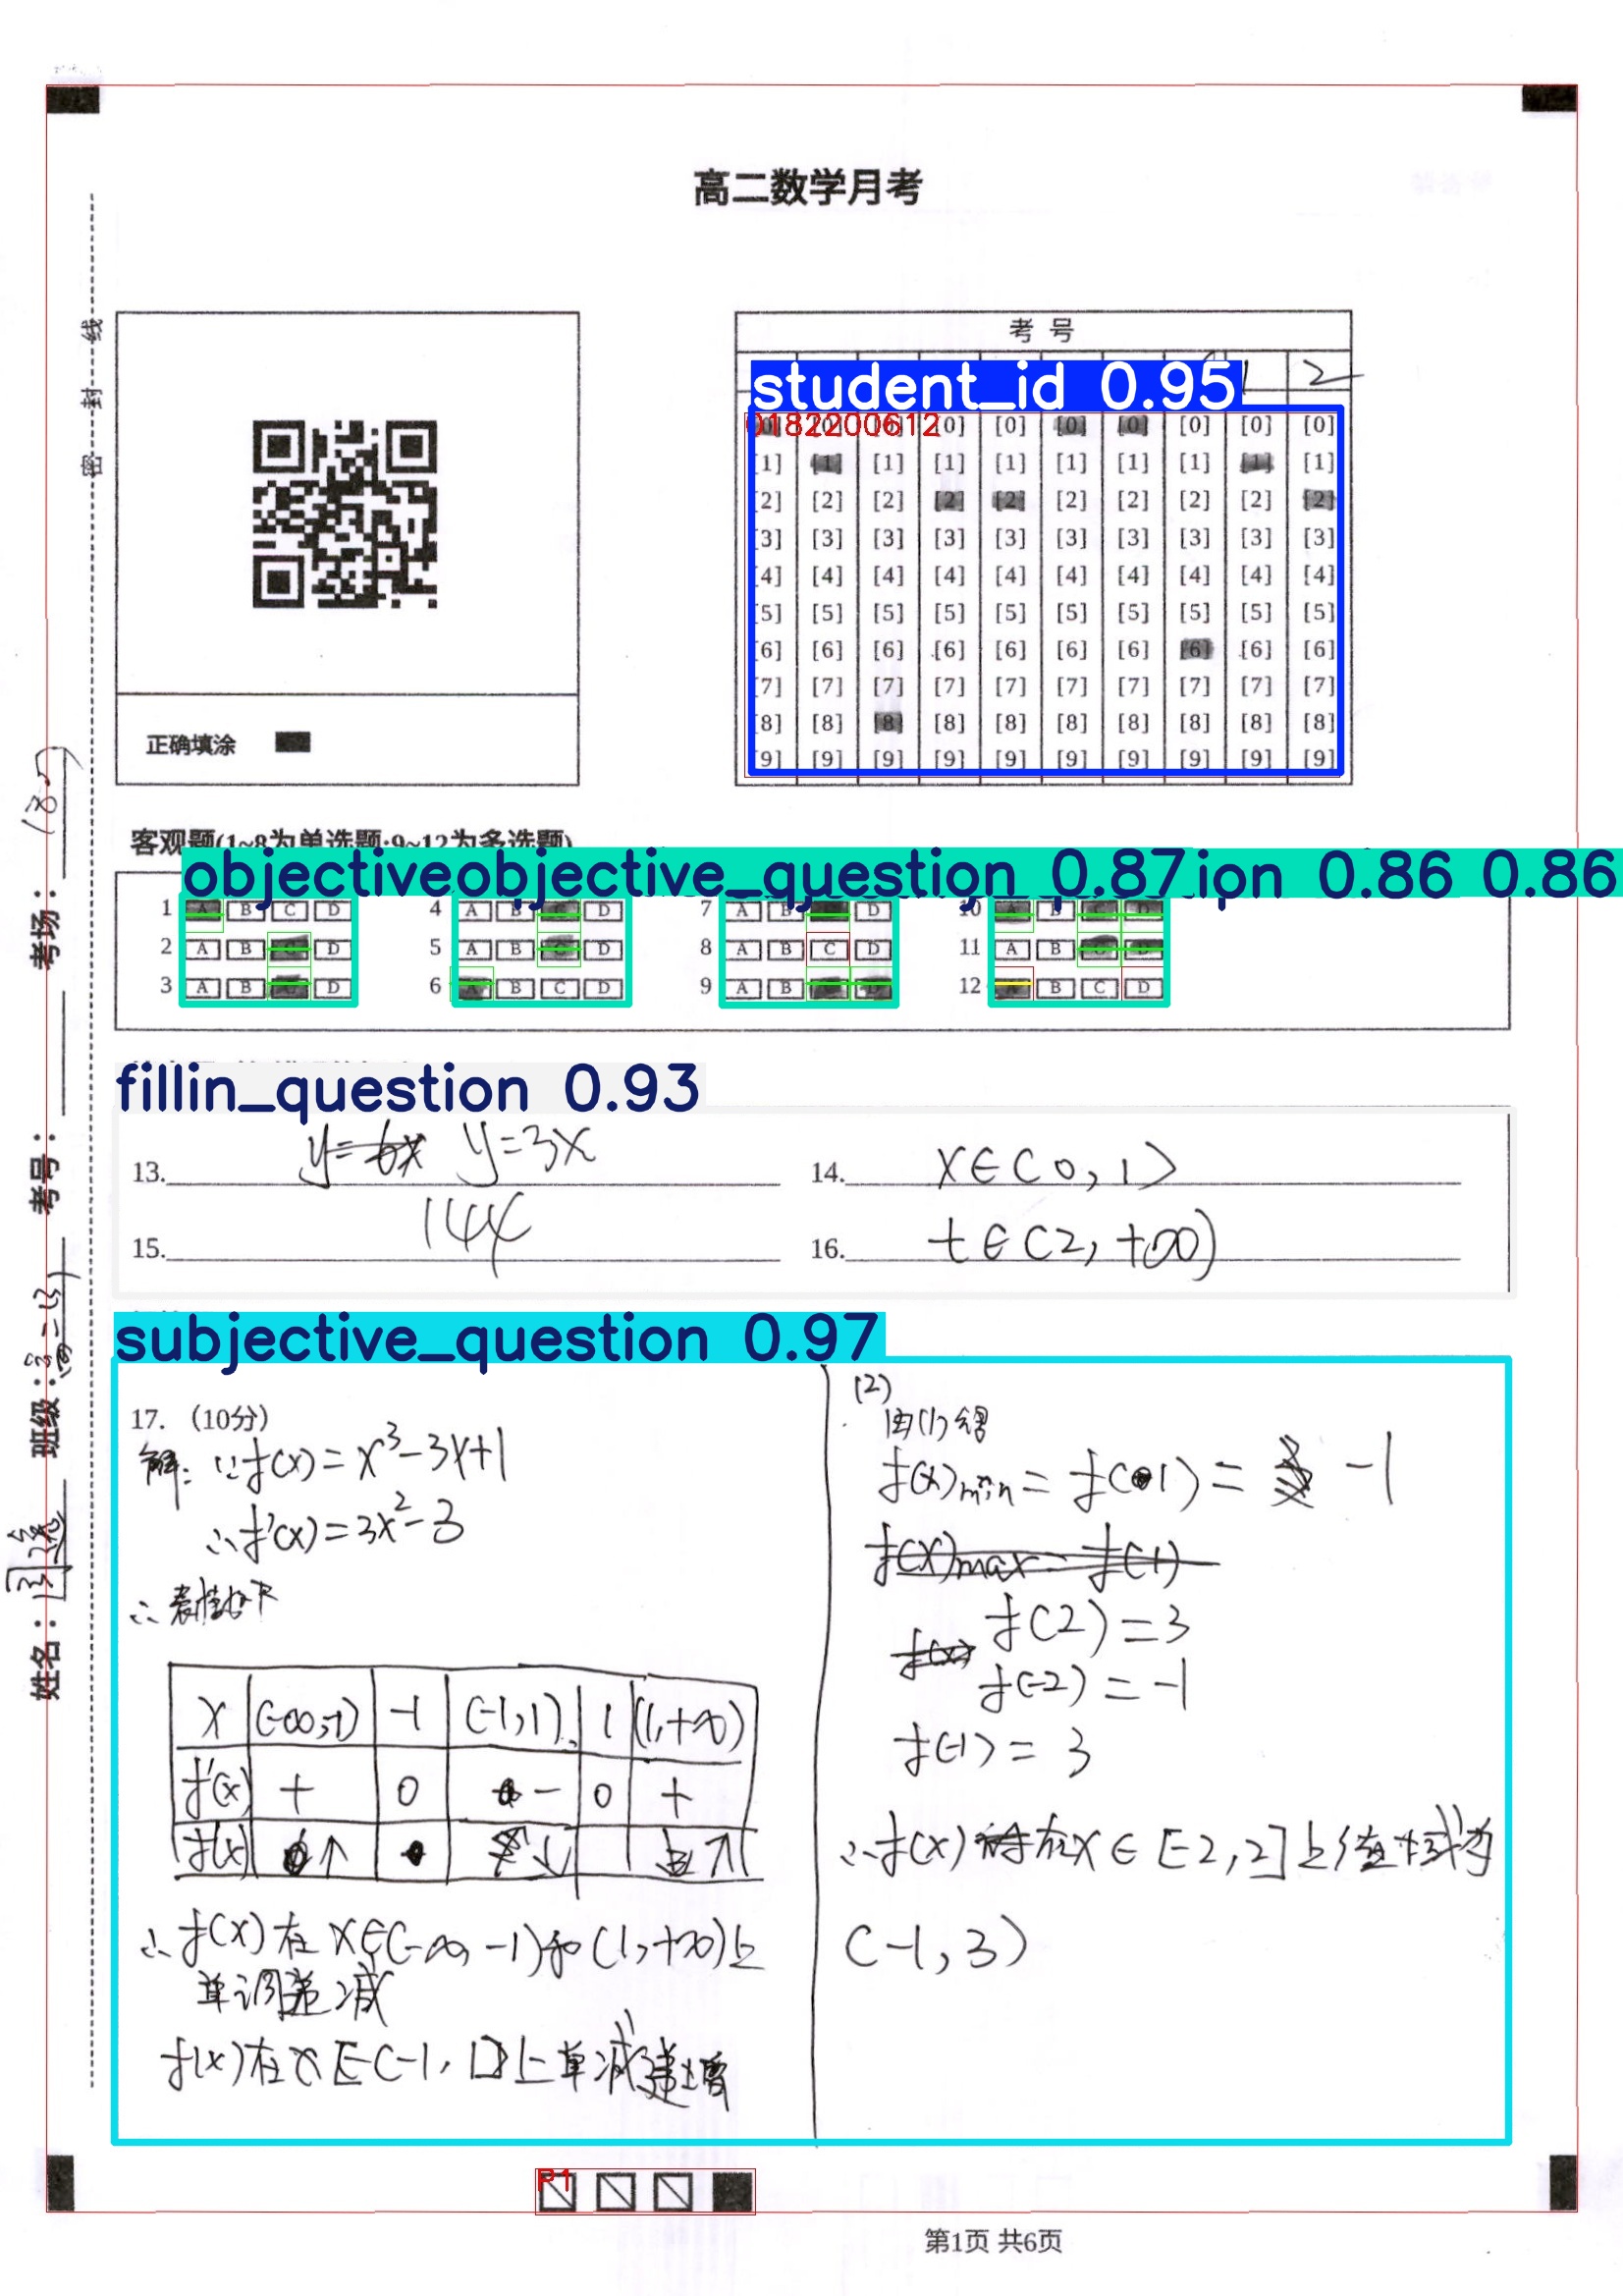 高二数学月考
密 封 线
姓名： 班级： 考号： 考场：
正确填涂
考 号
1 2
student_id 0.95
0182200612
[0] [0] [0] [0] [0] [0] [0]
[1] [1] [1] [1] [1] [1] [1] [1] [1] [1]
[2] [2] [2] [2] [2] [2] [2] [2] [2] [2]
[3] [3] [3] [3] [3] [3] [3] [3] [3] [3]
[4] [4] [4] [4] [4] [4] [4] [4] [4] [4]
[5] [5] [5] [5] [5] [5] [5] [5] [5] [5]
[6] [6] [6] [6] [6] [6] [6] [6] [6] [6]
[7] [7] [7] [7] [7] [7] [7] [7] [7] [7]
[8] [8] [8] [8] [8] [8] [8] [8] [8] [8]
[9] [9] [9] [9] [9] [9] [9] [9] [9] [9]
客观题(1~8为单选题;9~12为多选题)
objectiveobjective_question 0.87ion 0.86 0.86
1 A B C D 4 A B C D 7 A B D 10 A B C D
2 A B C D 5 A B C D 8 A B C D 11 A B C D
3 A B C D 6 A B C D 9 A B C D 12 A B C D
fillin_question 0.93
13. y=6x y=3x 14. x∈(0,1)
15. 144 16. t∈(2,+∞)
subjective_question 0.97
17. (10分)
解: ∵f(x)=x³-3x+1
∴f'(x)=3x²-3
∴表格如下
x (-∞,-1) -1 (-1,1) 1 (1,+∞)
f'(x) + 0 - 0 +
f(x) ↑ ↓ ↑
∴f(x)在x∈(-∞,-1)和(1,+∞)上
单调递减
f(x)在x∈(-1,1)上单减递增
(2)
由(1)得
f(x)min=f(1)= -1
f(x)max=f(1)
f(2)=3
f(x) f(-2)=-1
f(-1)=3
∴f(x)在x∈[-2,2]上值域为
(-1,3)
P1
第1页 共6页